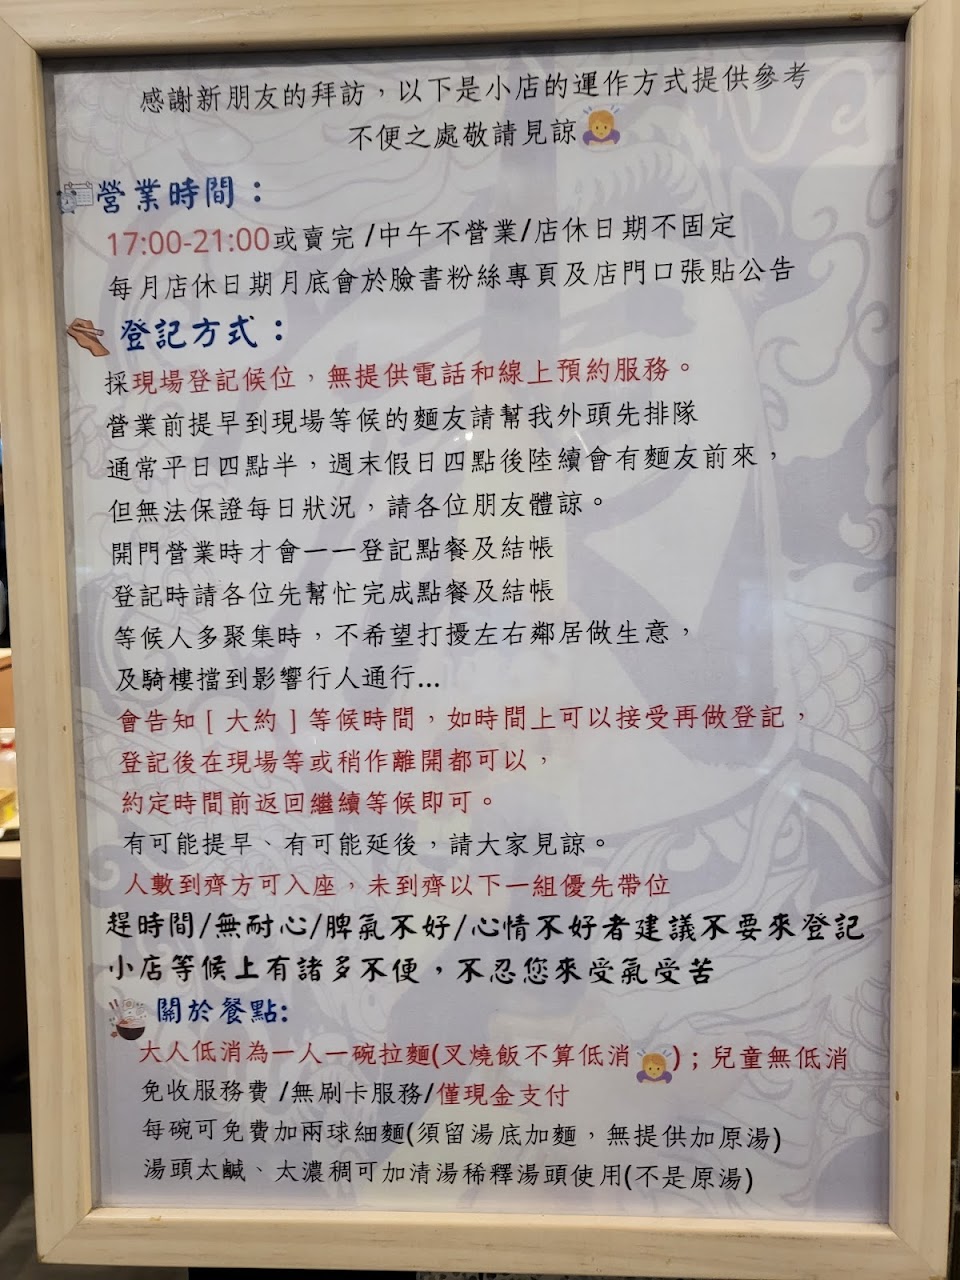 感謝新朋友的拜訪，以下是小店的運作方式提供參考
不便之處敬請見諒
營業時間：
17:00-21:00或賣完 /中午不營業/店休日期不固定
每月店休日期月底會於臉書粉絲專頁及店門口張貼公告
登記方式：
採現場登記候位，無提供電話和線上預約服務。
營業前提早到現場等候的麵友請幫我外頭先排隊
通常平日四點半，週末假日四點後陸續會有麵友前來，
但無法保證每日狀況，請各位朋友體諒。
開門營業時才會一一登記點餐及結帳
登記時請各位先幫忙完成點餐及結帳
等候人多聚集時，不希望打擾左右鄰居做生意，
及騎樓擋到影響行人通行...
會告知［大約］等候時間，如時間上可以接受再做登記，
登記後在現場等或稍作離開都可以，
約定時間前返回繼續等候即可。
有可能提早、有可能延後，請大家見諒。
人數到齊方可入座，未到齊以下一組優先帶位
趕時間/無耐心/脾氣不好/心情不好者建議不要來登記
小店等候上有諸多不便，不忍您來受氣受苦
關於餐點:
大人低消為一人一碗拉麵(叉燒飯不算低消)；兒童無低消
免收服務費 /無刷卡服務/僅現金支付
每碗可免費加兩球細麵(須留湯底加麵，無提供加原湯)
湯頭太鹹、太濃稠可加清湯稀釋湯頭使用(不是原湯)